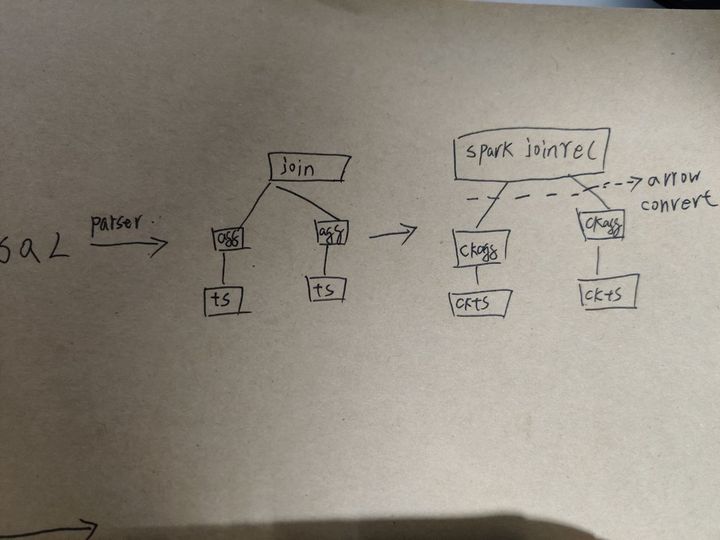 SQL
parser
join
agg
agg
ts
ts
spark joinrel
arrow
convert
ckagg
ckagg
ckts
ckts